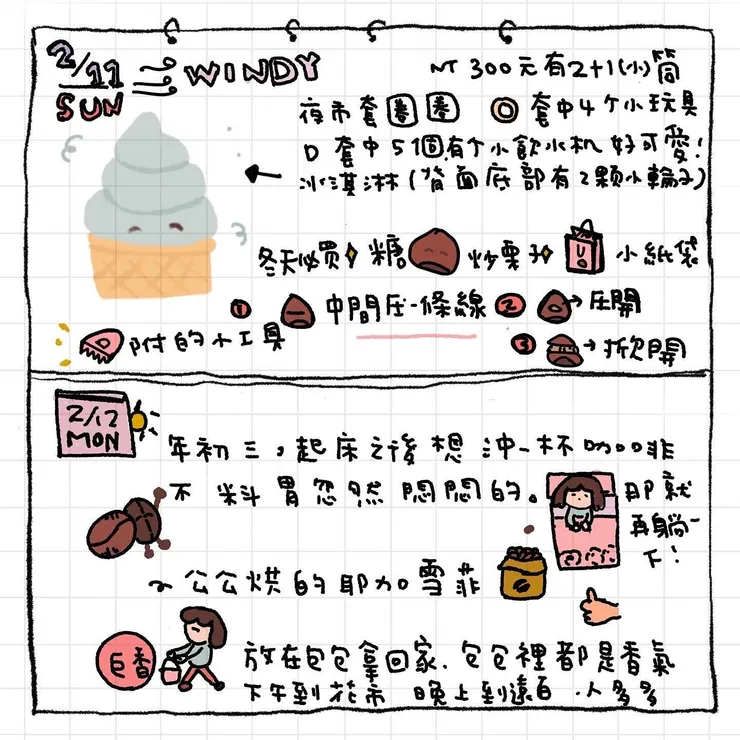 2/11
SUN
WINDY
NT 300元有2+1(小)筒
夜市套圈圈 套中4个小玩具
套中5個有个小飲水机 好可愛!
冰淇淋(背面底部有2顆小輪子)
冬天必買 糖 炒栗子 小紙袋
1 中間压一條線 2 压開
附的小工具 3 扳開
2/12
MON
年初三,起床之後想沖一杯咖啡
不料胃忽然悶悶的。那就
再躺一
下!
~公公烘的耶加雪菲
巨香
放在包包拿回家.包包裡都是香氣
下午到花市 晚上到遠百.人多多